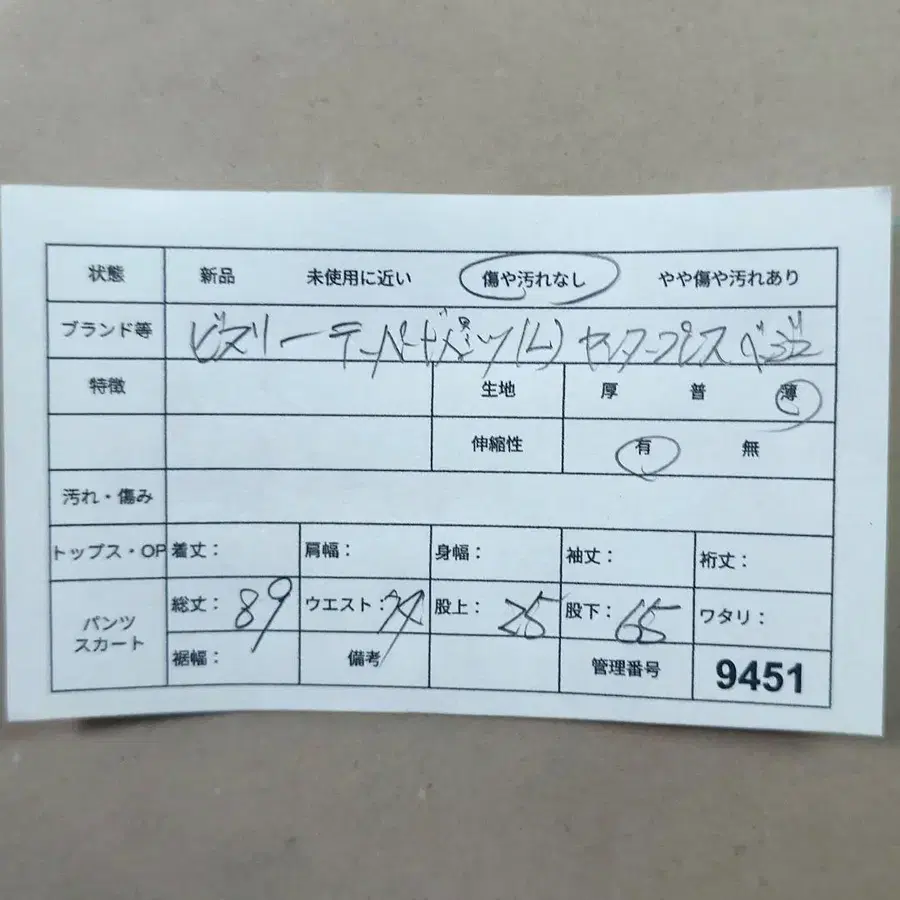 状態 新品 未使用に近い 傷や汚れなし やや傷や汚れあり
ブランド等 ビズリーテーパードパンツ(L) センタープレス ベージュ
特徴 生地 厚 普 薄
伸縮性 有 無
汚れ・傷み
トップス・OP 着丈: 肩幅: 身幅: 袖丈: 裄丈:
パンツ スカート 総丈: 89 ウエスト: 股上: 25 股下: 65 ワタリ:
裾幅: 備考 管理番号 9451